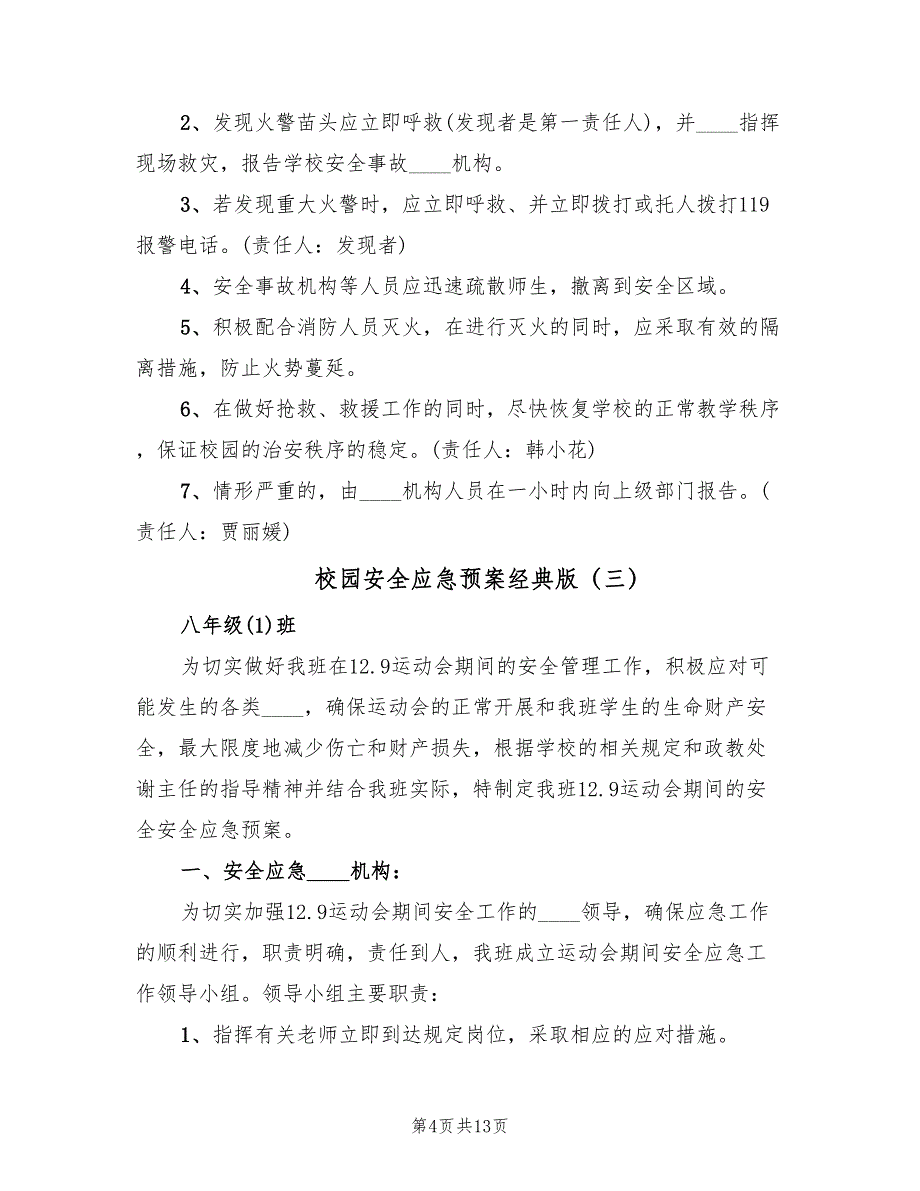 2、发现火警苗头应立即呼救(发现者是第一责任人)，并____指挥
现场救灾，报告学校安全事故____机构。
3、若发现重大火警时，应立即呼救、并立即拨打或托人拨打119
报警电话。(责任人：发现者)
4、安全事故机构等人员应迅速疏散师生，撤离到安全区域。
5、积极配合消防人员灭火，在进行灭火的同时，应采取有效的隔
离措施，防止火势蔓延。
6、在做好抢救、救援工作的同时，尽快恢复学校的正常教学秩序
，保证校园的治安秩序的稳定。(责任人：韩小花)
7、情形严重的，由____机构人员在一小时内向上级部门报告。(
责任人：贾丽媛)
校园安全应急预案经典版（三）
八年级(1)班
为切实做好我班在12.9运动会期间的安全管理工作，积极应对可
能发生的各类____，确保运动会的正常开展和我班学生的生命财产安
全，最大限度地减少伤亡和财产损失，根据学校的相关规定和政教处
谢主任的指导精神并结合我班实际，特制定我班12.9运动会期间的安
全安全应急预案。
一、安全应急____机构：
为切实加强12.9运动会期间安全工作的____领导，确保应急工作
的顺利进行，职责明确，责任到人，我班成立运动会期间安全应急工
作领导小组。领导小组主要职责：
1、指挥有关老师立即到达规定岗位，采取相应的应对措施。
第4页共13页